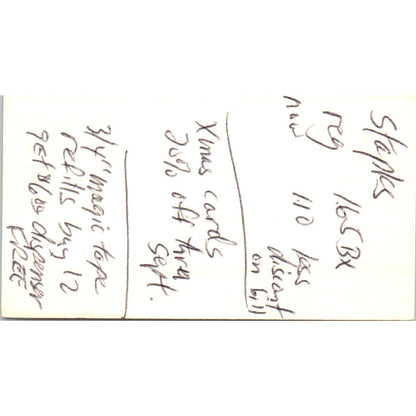 Staples
reg 1.65 BX
now 1.10 less
discont
on bill
Xmas cards
20% off thru
Sept.
3/4" magic tape
refills buy 12
get $6.00 dispenser
FREE